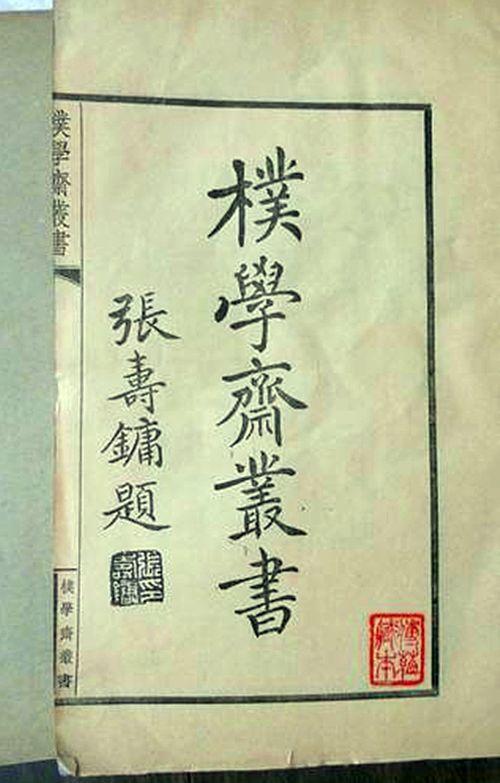 樸學齋叢書
張壽鏞題
樸學齋叢書
樸學齋叢書